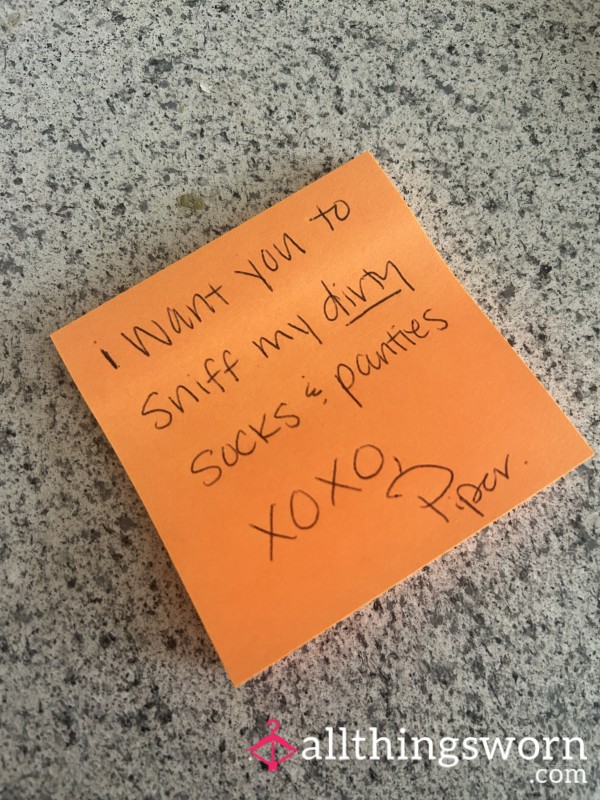 i want you to
sniff my dirty
socks & panties
XOXO,
Piper.
allthingsworn
.com